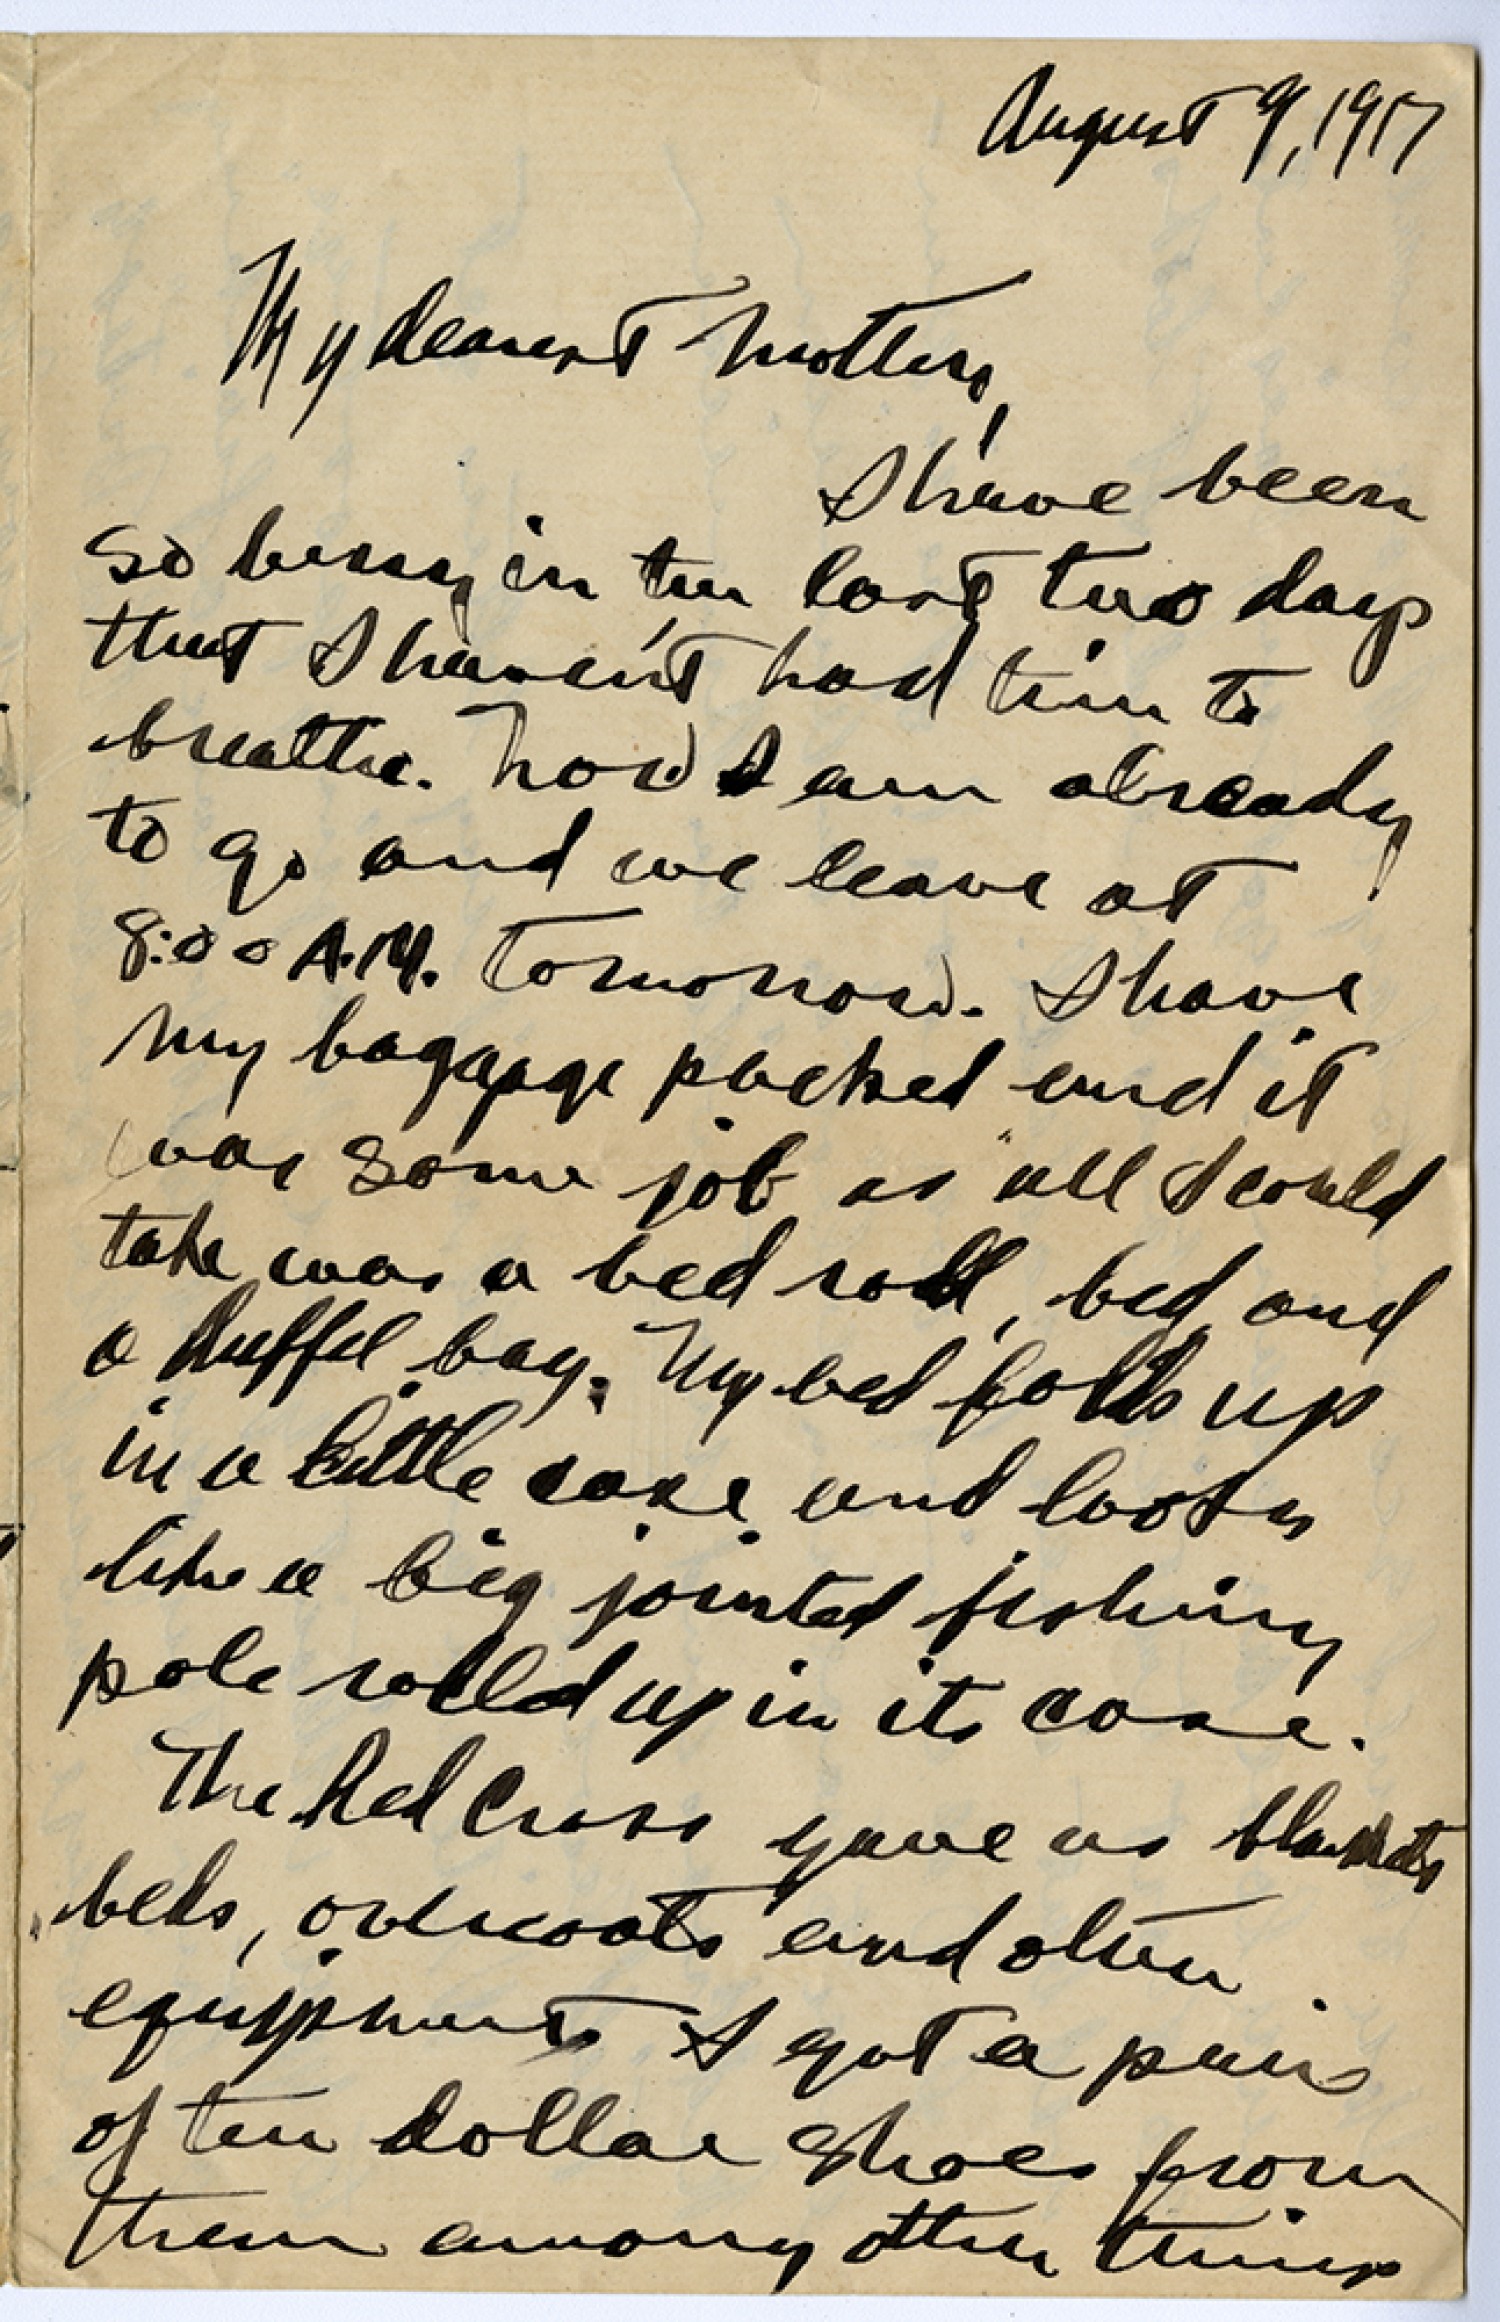 August 9, 1917
My dearest Mother,
I have been
so busy in the last two days
that I haven't had time to
breathe. Now I am already
to go and we leave at
8:00 A.M. tomorrow. I have
my baggage packed and it
was some job as all I could
take was a bed roll, bed and
a duffel bag. My bed folds up
in a little case and looks
like a big jointed fishing
pole rolled up in its case.
The Red Cross gave us blankets
beds, overcoats and other
equipment. I got a pair
of ten dollar shoes from
them among other things